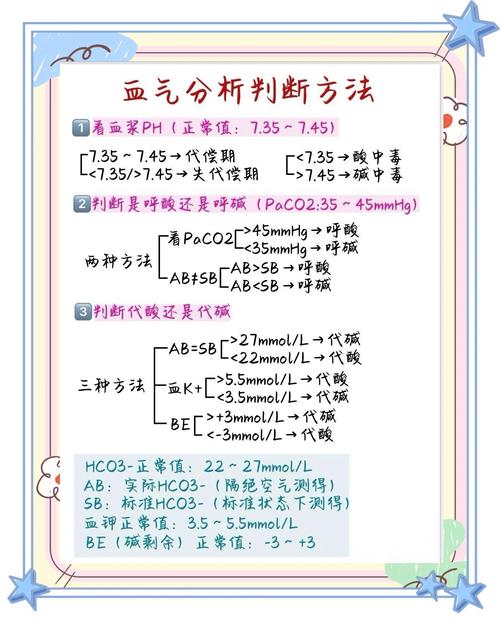 血气分析判断方法
1 看血浆PH（正常值：7.35~7.45）
7.35~7.45→代偿期 <7.35→酸中毒
<7.35/>7.45→失代偿期 >7.45→碱中毒
2 判断是呼酸还是呼碱（PaCO2:35~45mmHg）
两种方法
看PaCO2
>45mmHg→呼酸
<35mmHg→呼碱
AB≠SB
AB>SB→呼酸
AB<SB→呼碱
3 判断代酸还是代碱
三种方法
AB=SB
>27mmol/L→代碱
<22mmol/L→代酸
血K+
>5.5mmol/L→代酸
<3.5mmol/L→代碱
BE
>+3mmol/L→代碱
<-3mmol/L→代酸
HCO3-正常值：22~27mmol/L
AB：实际HCO3-（隔绝空气测得）
SB：标准HCO3-（标准状态下测得）
血钾正常值：3.5~5.5mmol/L
BE（碱剩余）正常值：-3~+3